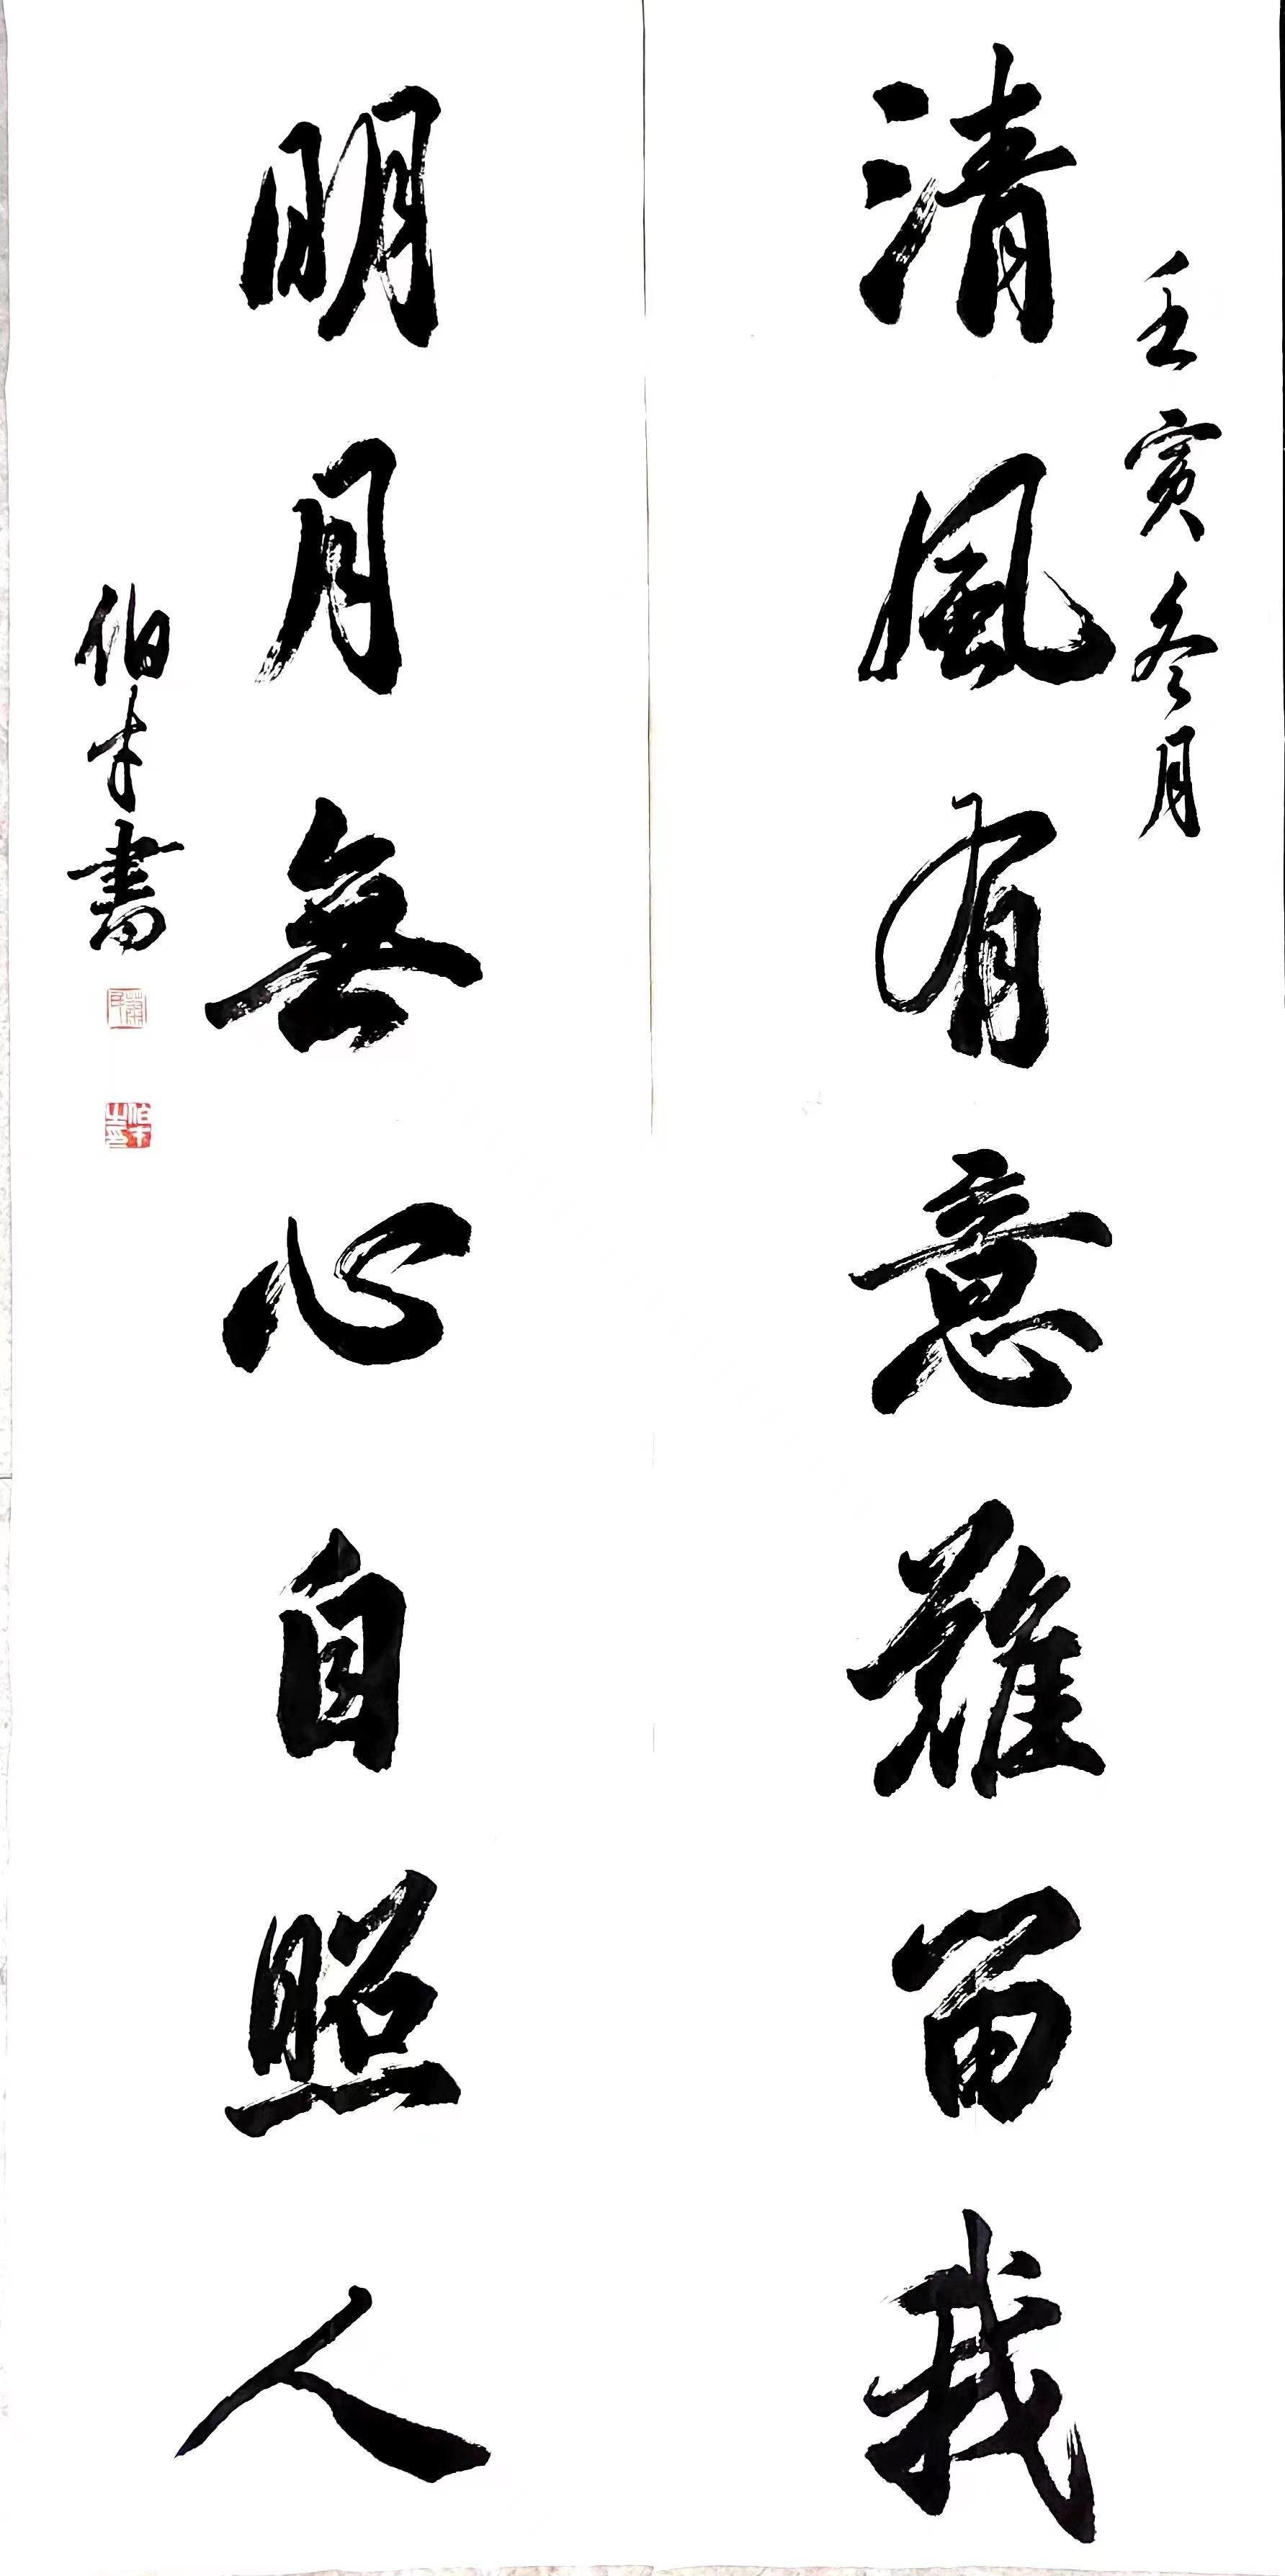 壬寅冬月
清風有意難留我
明月無心自照人
伯才書